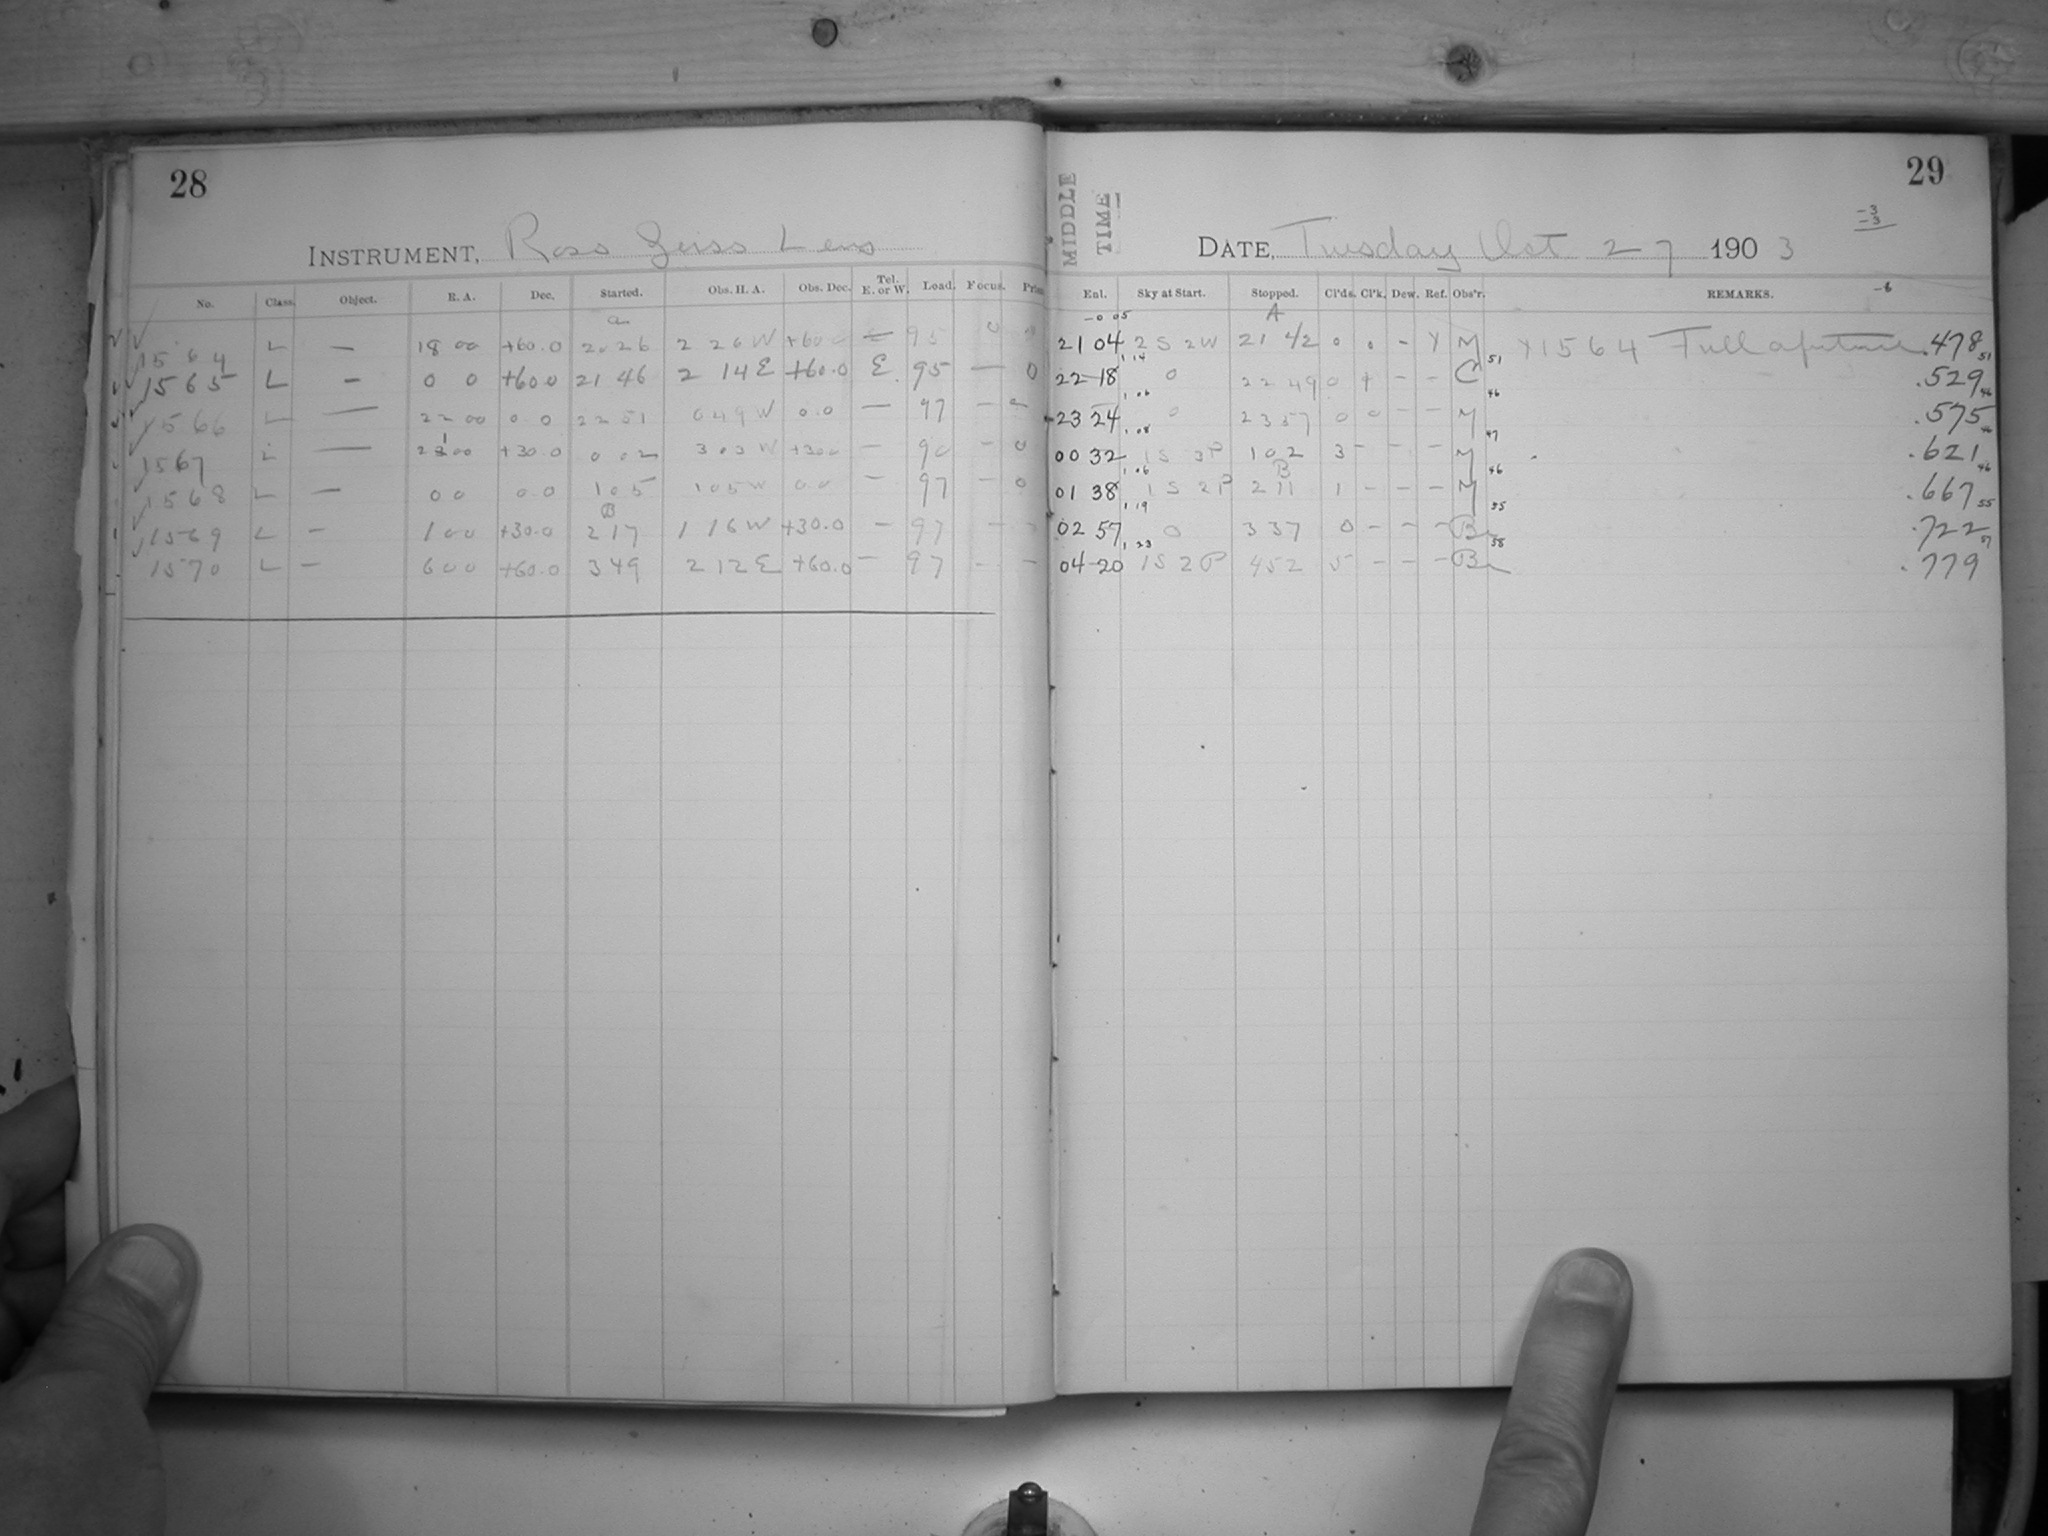 28
INSTRUMENT, Ross Zeiss Lens
No. Class. Object. R. A. Dec. Started. Obs. H. A. Obs. Dec. Tel. E. or W. Load. Focus.
a
1564 L — 18 00 +60.0 20 26 2 26 W +60.0 E 95 0
1565 L — 0 0 +60.0 21 46 2 14 E +60.0 E. 95 — 0
1566 L — 22 00 0.0 22 51 0 49 W 0.0 — 97 —
1567 L — +30.0 0 02 3 03 W +30.0 — 90 — 0
1568 L — 0 0 0.0 1 05 1 05 W 0.0 — 97 — 0
B
1569 L — 1 00 +30.0 2 17 1 16 W +30.0 — 97 —
1570 L — 6 00 +60.0 3 49 2 12 E +60.0 — 97 — —
29
MIDDLE
TIME
-3
-3
DATE, Tuesday Oct 27 1903
Enl. Sky at Start. Stopped. Cl'ds. Cl'k. Dew. Ref. Obs'r. REMARKS. -6
-0 05 A
21 04 2 S 2 W 21 42 0 0 - Y M Y1564 Full aperture .478
1,14 51 51
22 18 0 22 49 0 + - - C .529
1,06 46 46
23 24 0 23 57 0 0 - - M .575
1,08 47 46
00 32 1 S 3 P 1 02 3 - - - M .621
1,06 B 46 46
01 38 1 S 2 P 2 11 1 - - - M .667
1,19 55 55
02 57 0 3 37 0 - - - Br .722
1,23 58 57
04 20 1 S 2 P 4 52 5 - - - Br .779